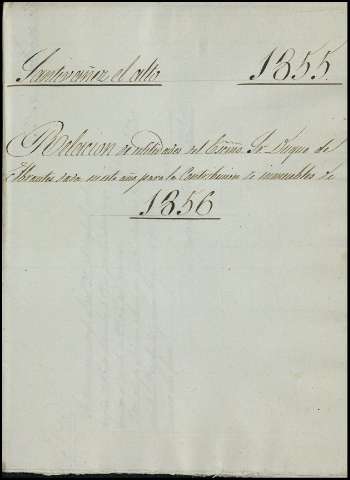 Santivañez el alto 1855
Relacion de utilidades del Exmo. Sr. Duque de
Abrantes dada en este año para la Contribucion de inmuebles de
1856